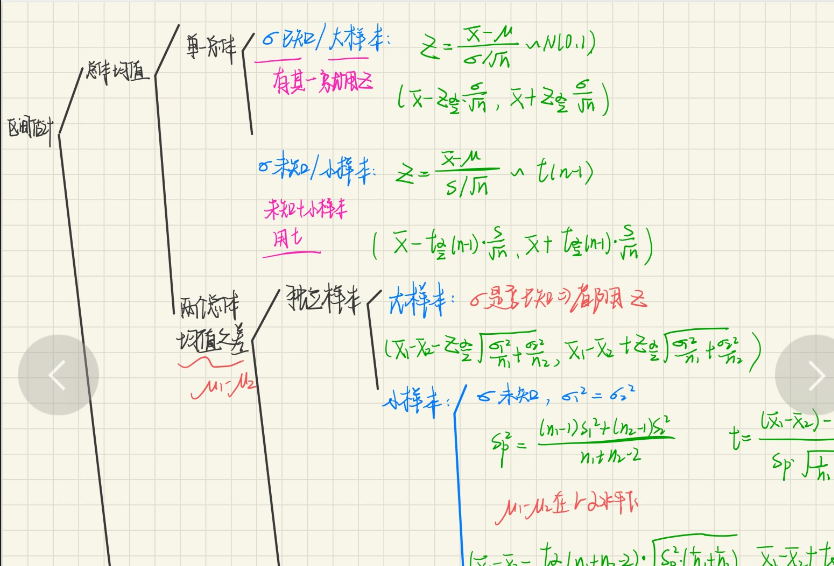 区间估计
总体均值
单一总体
σ已知/大样本: Z = (x̄-μ)/(σ/√n) ~ N(0,1)
有其一就用Z
(x̄ - Zα/2·σ/√n, x̄ + Zα/2 σ/√n)
σ未知/小样本: Z = (x̄-μ)/(S/√n) ~ t(n-1)
未知+小样本
用t
(x̄ - tα/2(n-1)·S/√n, x̄ + tα/2(n-1)·S/√n)
两个总体
均值之差
μ₁-μ₂
独立样本
大样本: σ是否已知 都用Z
(x̄₁-x̄₂ - Zα/2 √(σ₁²/n₁+σ₂²/n₂), x̄₁-x̄₂ + Zα/2 √(σ₁²/n₁+σ₂²/n₂))
小样本: σ未知, σ₁²=σ₂²
Sp² = ((n₁-1)S₁²+(n₂-1)S₂²)/(n₁+n₂-2)
t = (x̄₁-x̄₂)-
Sp·√1/n₁
μ₁-μ₂在1-α水平下
(x̄₁-x̄₂ - tα/2(n₁+n₂-2)·√Sp²(1/n₁+1/n₂) x̄₁-x̄₂+t